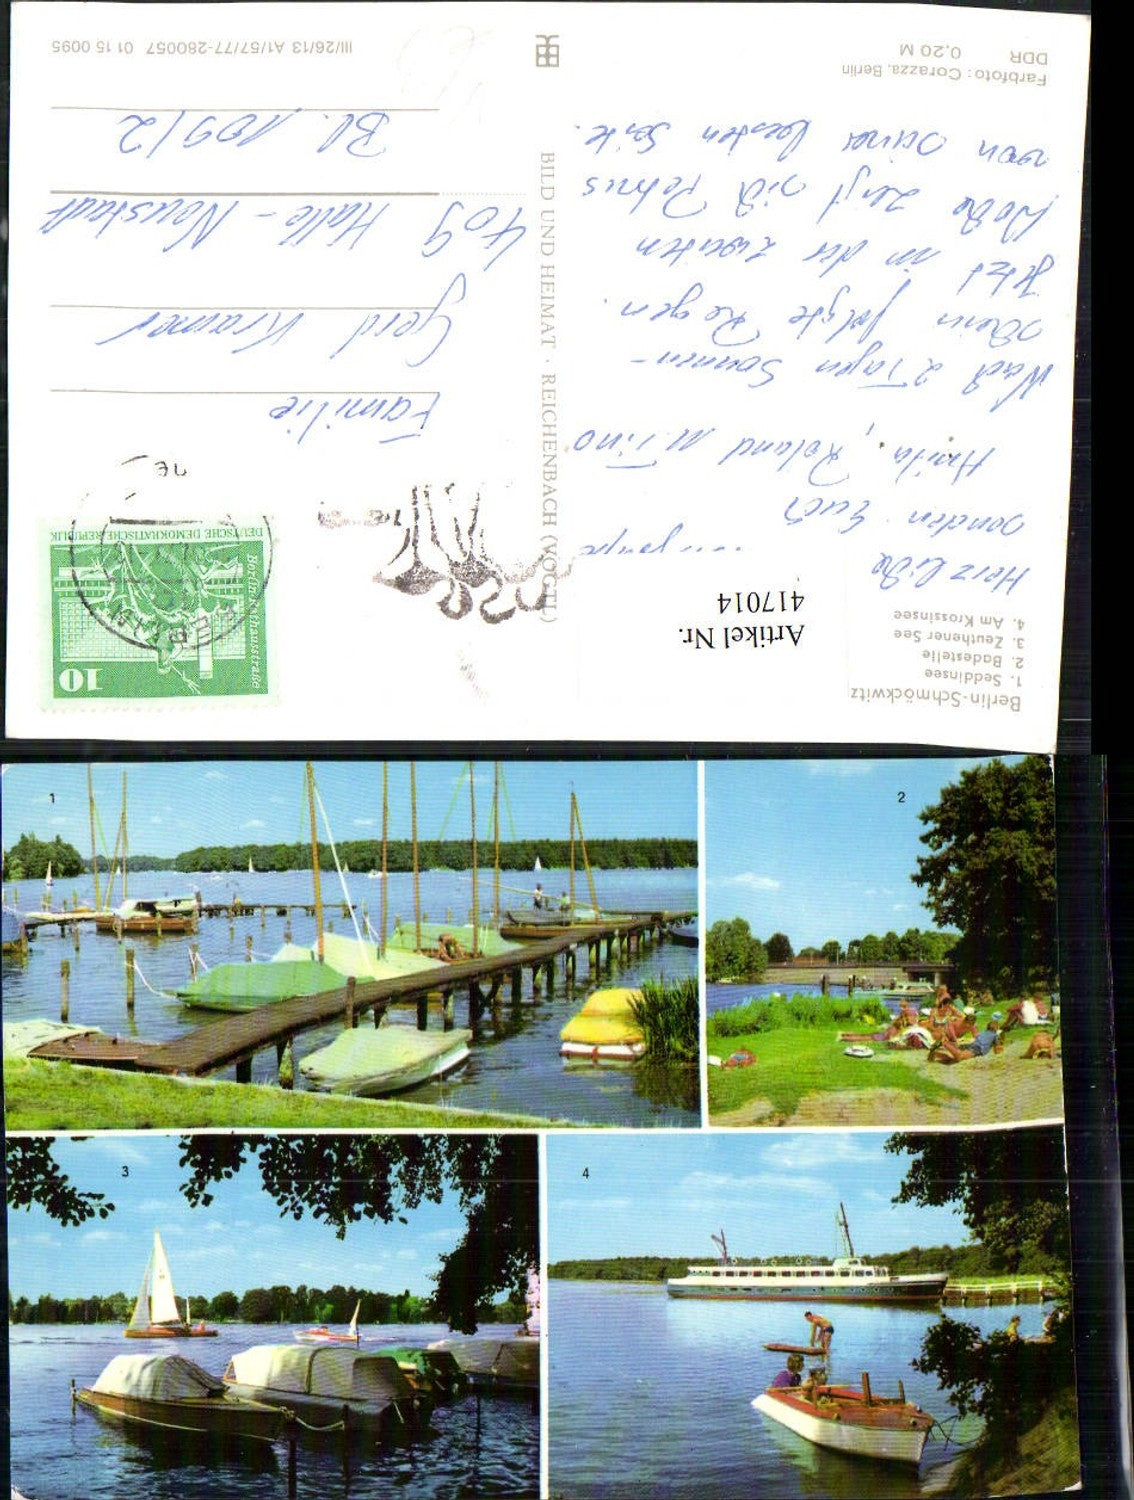 Berlin-Schmöckwitz
1. Seddinsee
2. Badestelle
3. Zeuthener See
4. Am Krossinsee
Artikel Nr.
417014
Herzliche
senden Euch
Anita, Roland u. Tino
Nach 2 Tagen Sonnen-
schein folgte Regen.
Jetzt in der zweiten
Woche zeigt sich Petrus
von seiner besten Seite.
Farbfoto: Corazza, Berlin
DDR 0,20 M
BILD UND HEIMAT · REICHENBACH (VOGTL)
10
Berlin, Rathausstraße
DEUTSCHE DEMOKRATISCHE REPUBLIK
Familie
Gerd Kramer
409 Halle-Neustadt
Bl. 109/2
III/26/13 A1/57/77-280057 01 15 0095
1
2
3
4